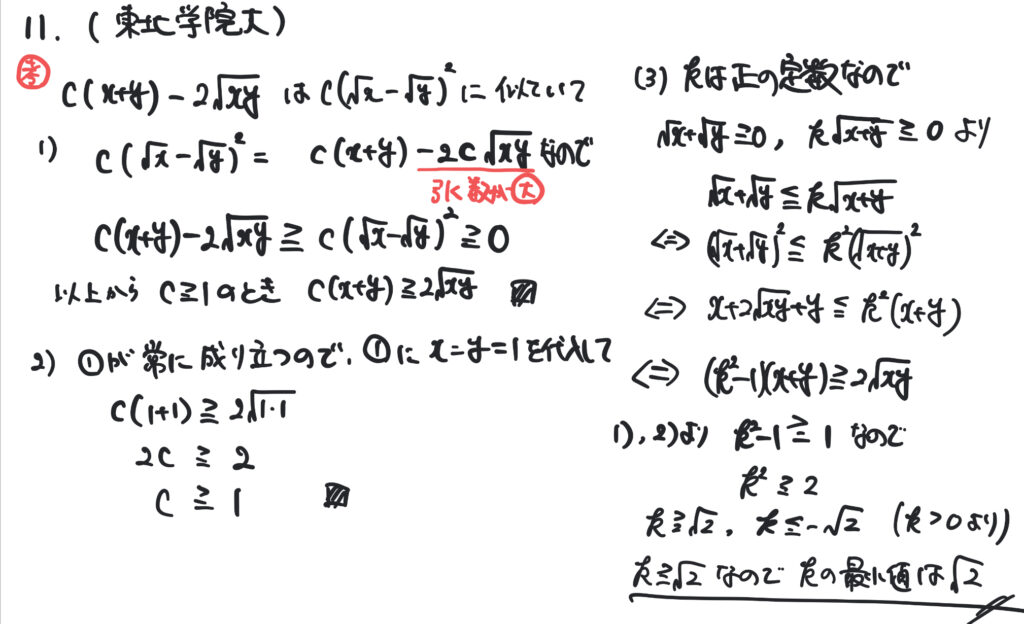 11. (東北学院大)
考 c(x+y)-2√xy は c(√x-√y)² に似ていて
1) c(√x-√y)² = c(x+y)-2c√xy なので
引く数が大
c(x+y)-2√xy ≧ c(√x-√y)² ≧ 0
以上から c≧1のとき c(x+y)≧2√xy
2) ①が常に成り立つので、①に x=y=1を代入して
c(1+1) ≧ 2√1·1
2c ≧ 2
c ≧ 1
(3) kは正の定数なので
√x+√y≧0, k√x+y ≧ 0 より
√x+√y ≦ k√x+y
⇔ (√x+√y)² ≦ k²(√x+y)²
⇔ x+2√xy+y ≦ k²(x+y)
⇔ (k²-1)(x+y)≧2√xy
1), 2)より k²-1 ≧ 1 なので
k² ≧ 2
k≧√2, k≦-√2 (k>0より)
k≧√2 なので kの最小値は√2